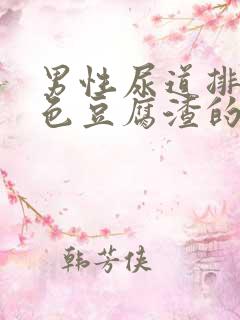 男性尿道排
色豆腐渣的
韩芳侠